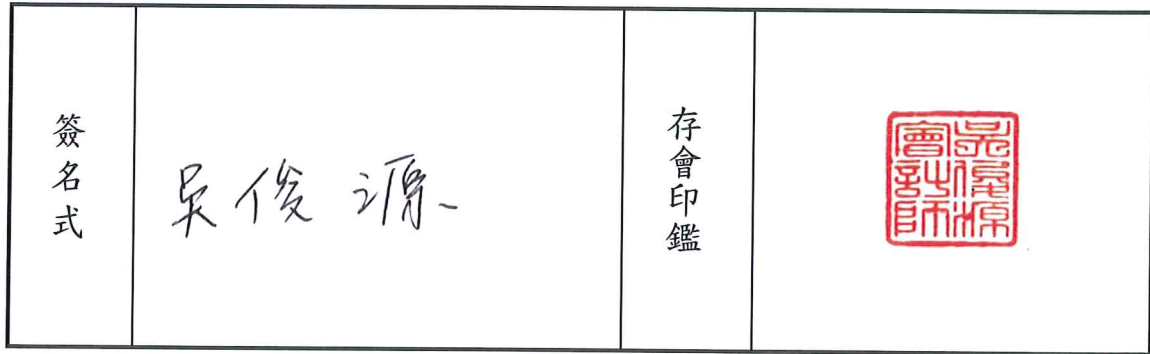 簽名式
吳俊源
存會印鑑
吳俊源
會計師